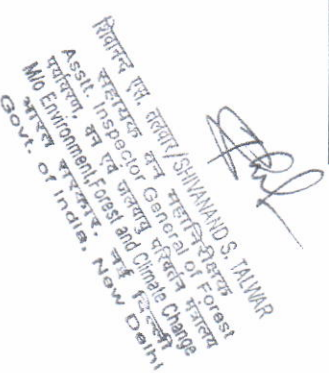 शिवानन्द एस. तलवार/SHIVANAND S. TALWAR
सहायक वन महानिरीक्षक
Asstt. Inspector General of Forest
पर्यावरण, वन एवं जलवायु परिवर्तन मंत्रालय
M/o Environment,Forest and Climate Change
भारत सरकार, नई दिल्ली
Govt. of India, New Delhi